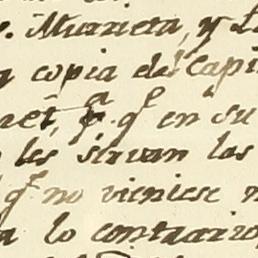 . Murrieta, y L
y copia del Capi
ret, p.ª q.e en su
les sirvan las
q.e no viniese n
a lo contrario